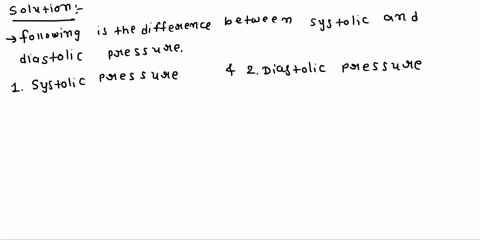 Solution:-
→ following is the difference between systolic and
diastolic pressure.
1. Systolic pressure & 2. Diastolic pressure